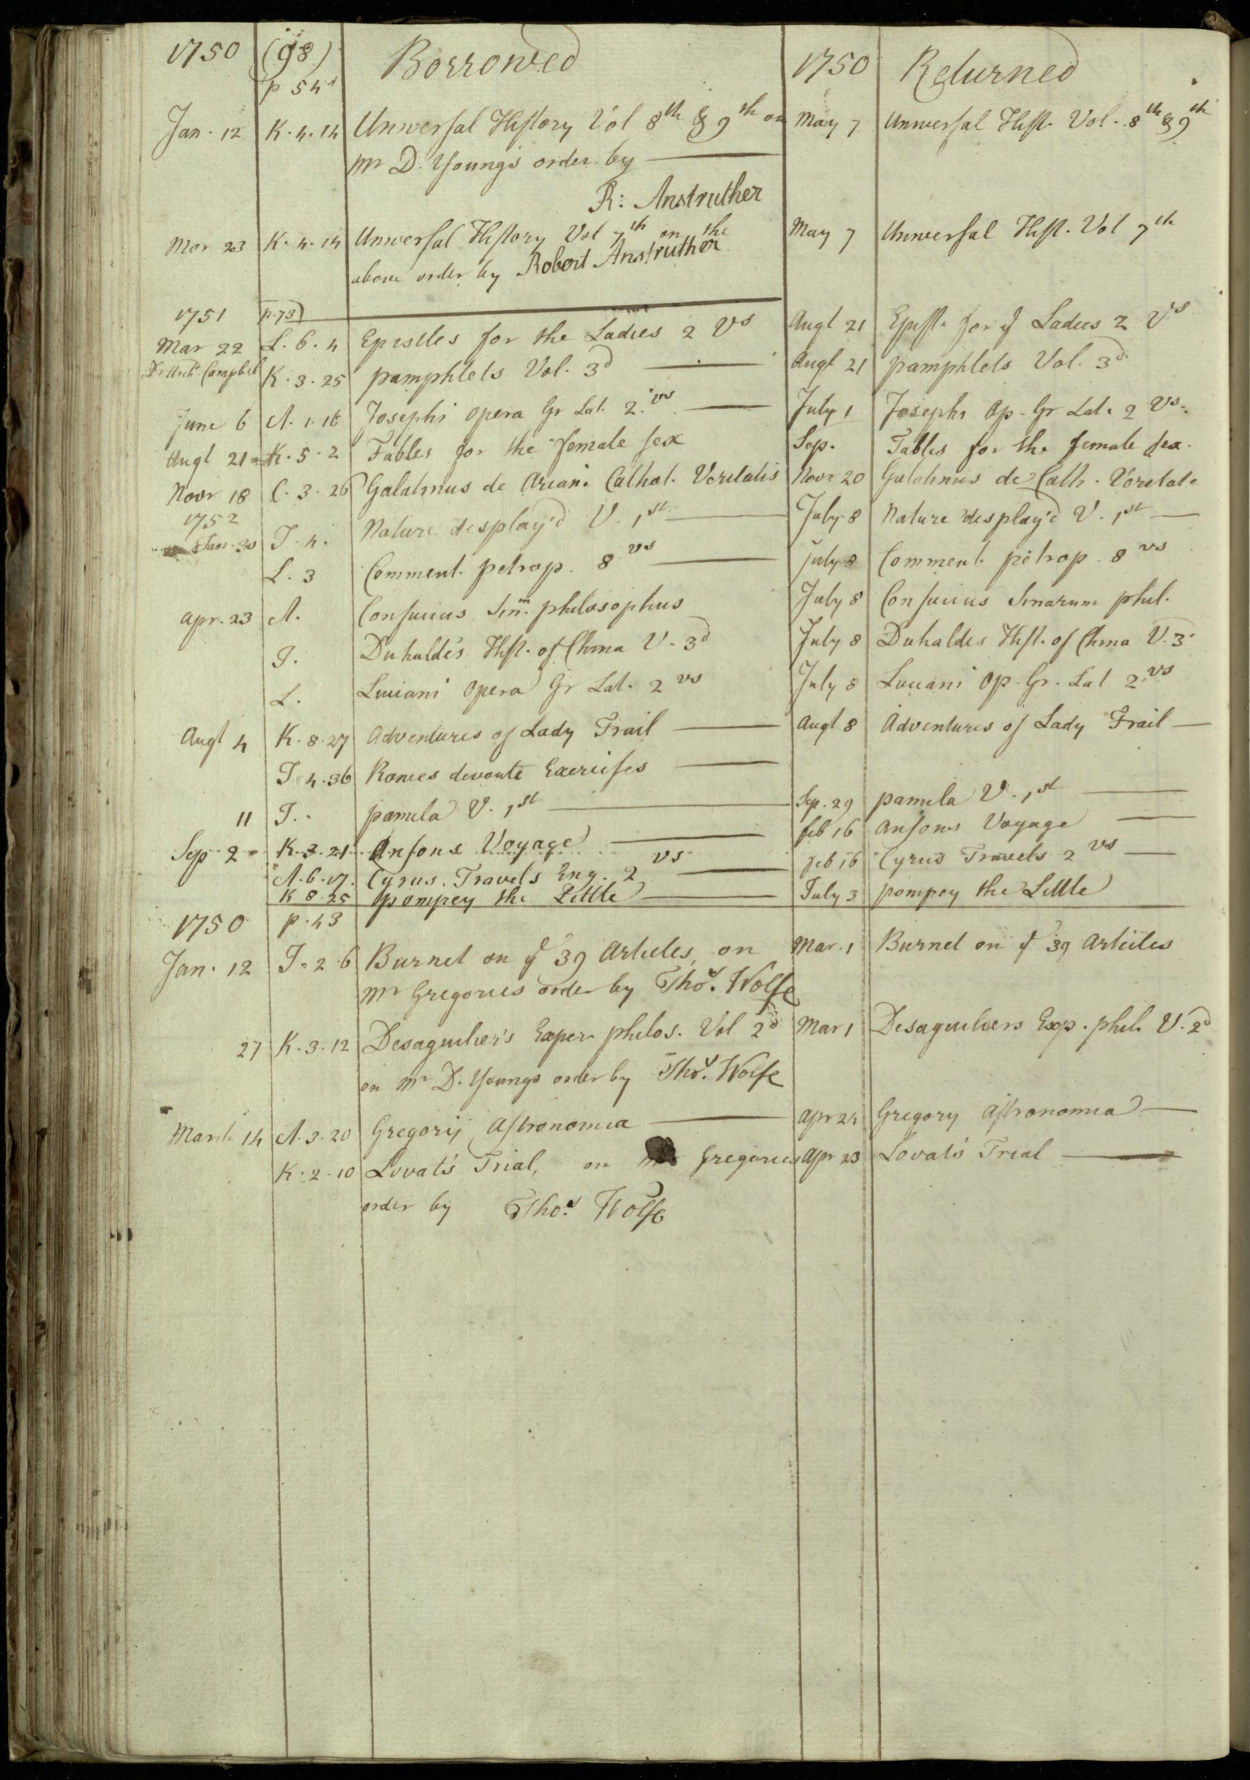 1750 (98) Borrowed 1750 Returned
p 54
Jan. 12 K. 4. 14 Universal History Vol 8th & 9th on May 7 Universal Hist. Vol. 8th & 9th
Mr D. Youngs order by
R: Anstruther
Mar 23 K. 4. 14 Universal History Vol 7th on the May 7 Universal Hist. Vol 7th
above order by Robert Anstruther
1751 p. 73)
Mar 22 L. 6. 4 Epistles for the Ladies 2 Vs Augt 21 Epist. for ye Ladies 2 Vs
Dr Archd Campbel K. 3. 25 pamphlets Vol. 3d Augt 21 pamphlets Vol. 3d
June 6 A. 1. 16 Josephi opera Gr Lat. 2. vs July 1 Josephi Op. Gr Lat. 2 Vs.
Augt 21 K. 5. 2 Fables for the female sex Sep. Fables for the female sex.
Novr 18 C. 3. 26 Galatinus de Arcani Cathol. Veritatis Novr 20 Galatinus de Cath. Veritate
1752
Jan. 30 J. 4. Nature display'd V. 1st July 8 Nature display'd V. 1st
L. 3 Comment. petrop. 8 vs July 8 Comment. petrop. 8 vs
Apr. 23 A. Confucius Sin. philosophus July 8 Confucius Sinarum phil.
J. Duhalde's Hist. of China V. 3d July 8 Duhaldes Hist. of China V. 3d
L. Luciani Opera Gr Lat. 2 vs July 8 Luciani Op. Gr. Lat 2 vs
Augt 4 K. 8. 27 Adventures of Lady Frail Augt 8 Adventures of Lady Frail
J. 4. 36 Rowes devoute Exercises
11 J. pamela V. 1st Sep. 29 pamela V. 1st
Sep 2 K. 3. 21 Ansons Voyage feb 16 Ansons Voyage
A. 6. 17. Cyrus. Travels Eng. 2 vs feb 16 Cyrus Travels 2 vs
K 8. 25 pompey the Little July 3 pompey the Little
1750 p. 43
Jan. 12 J. 2. 6 Burnet on ye 39 Articles, on Mar. 1 Burnet on ye 39 Articles
Mr Gregories order by Thos. Wolfe
27 K. 3. 12 Desagulier's Exper. philos. Vol 2d Mar 1 Desaguliers Exp. phil. V. 2d
on Mr D. Youngs order by Thos. Wolfe
March 14 A. 3. 20 Gregorij Astronomia Apr 24 Gregory Astronomia
K. 2. 10 Lovat's Trial, on Gregories Apr 23 Lovat's Trial
order by Thos. Wolfe